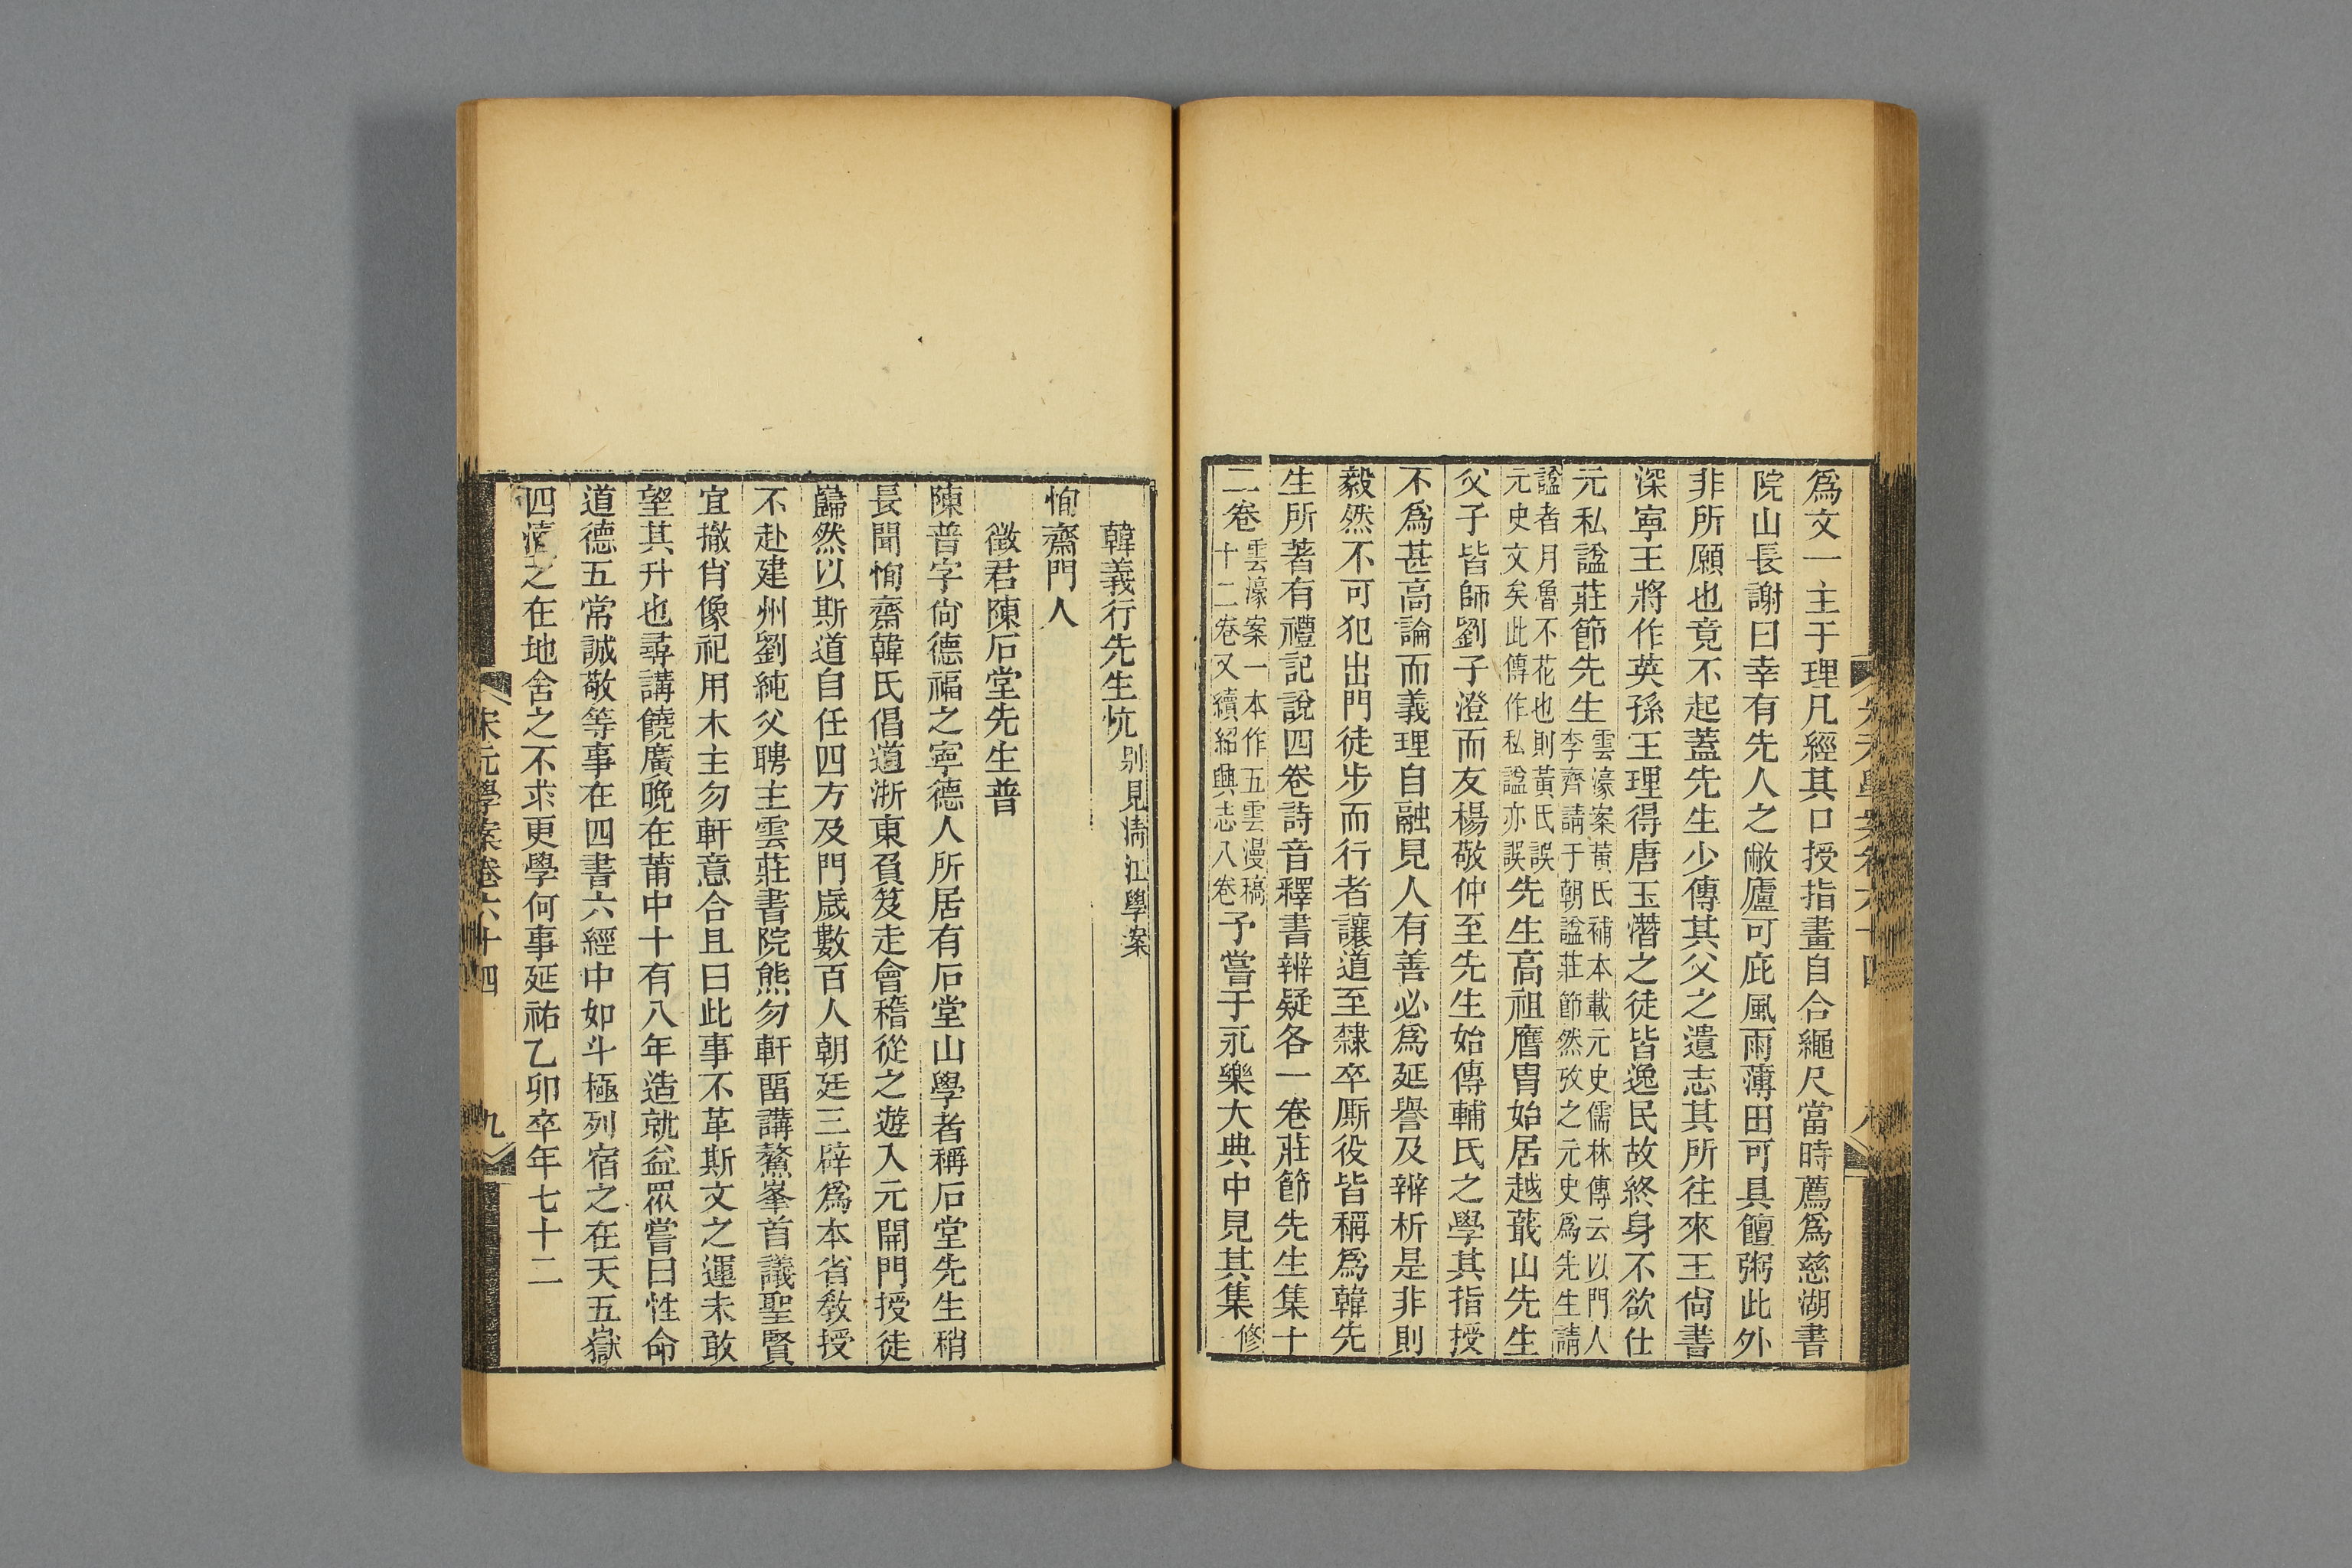 爲文一主于理凡經其口授指畫自合繩尺當時薦爲慈湖書
院山長謝曰幸有先人之敝廬可庇風雨薄田可具饘粥此外
非所願也竟不起蓋先生少傳其父之遺志其所往來王尙書
深寧王將作英孫王理得唐玉潛之徒皆逸民故終身不欲仕
元私諡莊節先生雲濠案黃氏補本載元史儒林傳云以門人
李齊請于朝諡莊節然攷之元史爲先生請
諡者月魯不花也則黃氏誤
元史文矣此傳作私諡亦誤先生高祖膺胄始居越蕺山先生
父子皆師劉子澄而友楊敬仲至先生始傳輔氏之學其指授
不爲甚高論而義理自融見人有善必爲延譽及辨析是非則
毅然不可犯出門徒步而行者讓道至隸卒厮役皆稱爲韓先
生所著有禮記說四卷詩音釋書辨疑各一卷莊節先生集十
二卷雲濠案一本作五雲漫稿
十二卷又續紹興志八卷予嘗于永樂大典中見其集修
韓義行先生忼別見濳江學案
恂齋門人
徵君陳石堂先生普
陳普字尙德福之寧德人所居有石堂山學者稱石堂先生稍
長聞恂齋韓氏倡道浙東負笈走會稽從之遊入元開門授徒
巋然以斯道自任四方及門歲數百人朝廷三辟爲本省敎授
不赴建州劉純父聘主雲莊書院熊勿軒畱講鰲峯首議聖賢
宜撤肖像祀用木主勿軒意合且曰此事不革斯文之運未敢
望其升也尋講饒廣晚在莆中十有八年造就益眾嘗曰性命
道德五常誠敬等事在四書六經中如斗極列宿之在天五嶽
四瀆之在地舍之不求更學何事延祐乙卯卒年七十二
宋元學案卷六十四
九